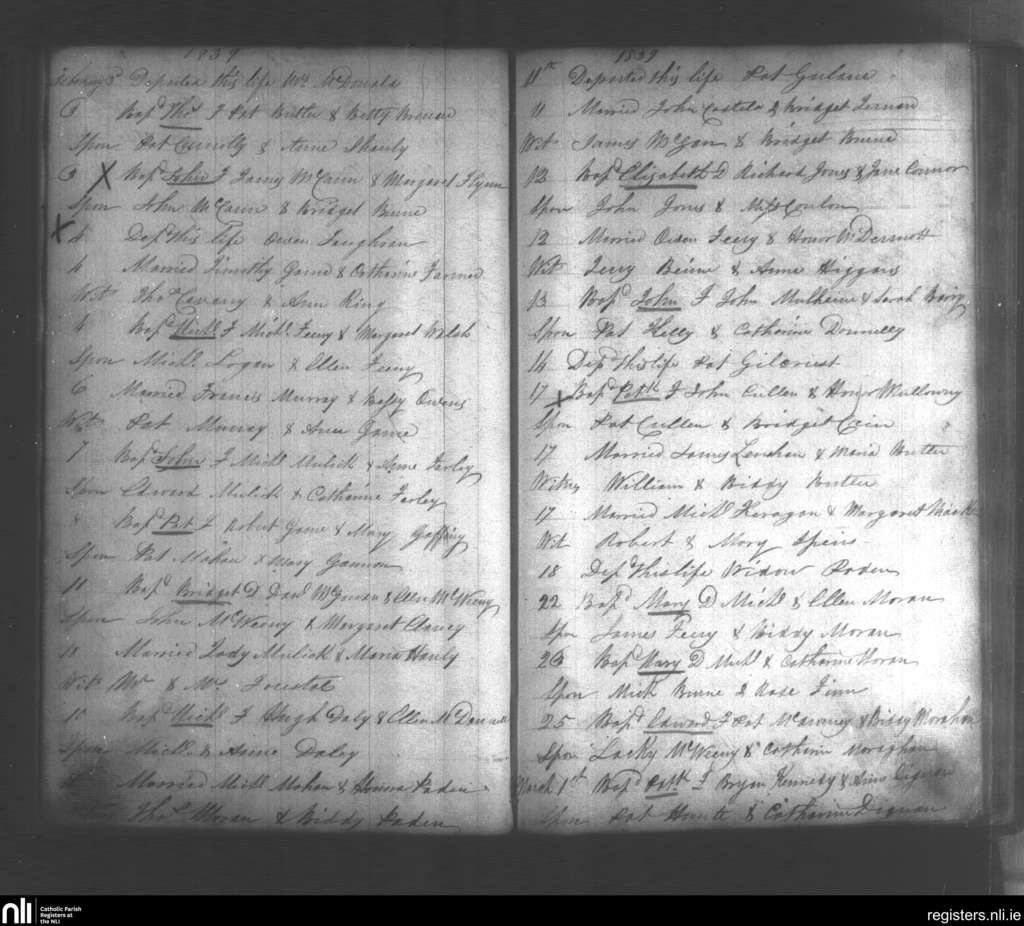 1839
Departed this life Mrs McDonald
3 Bapd Thos F Pat Butler & Betty
Spon Pat Connolly & Anne Shanly
3 X Bapd John F James McCann & Margaret Flynn
Spon John McCann & Bridget Beirne
X 4 Depd this life Owen Faughnan
4 Married Timothy Game & Catharine Farmer
Wit Thos Cavany & Ann Ring
4 Bapd Michl F Michl Feeny & Margaret Walsh
Spon Michl Logan & Ellen Feeny
6 Married Francis Murray & Betsy Owens
Wit Pat Murray & Ann Game
7 Bapd John F Michl Mulick & Anne Farley
Spon Edward Mulick & Catharine Farley
Bapd Pat F Robert Game & Mary Gaffny
Spon Pat Mahan & Mary Gannon
11 Bapd Bridget D Danl McGowan & Ellen McWeeny
Spon John McWeeny & Margaret Clancy
11 Married Lady Mulick & Maria Hanly
Wit Mr & Mrs
Bapd Michl F Hugh Daly & Ellen McDermott
Spon Michl & Anne Daly
Married Michl Mahan & Honora Paden
Thos Moran & Biddy Paden
1839
11th Departed this life Pat
11 Married John Costelo & Bridget
Wit James McGan & Bridget Beirne
12 Bapd Elizabeth D Richard Jones & Jane Connor
Spon John Jones & Miss Conlon
12 Married Owen Feeny & Honor McDermott
Wit Terry Beirne & Anne Higgans
13 Bapd John F John Mulherin & Sarah
Spon Pat Kelly & Catharine Donnelly
14 Depd this life Pat Gilcrist
17 X Bapd Patk F John Cullen & Honor Mullowny
Spon Pat Cullen & Bridget
17 Married James Lenehan & Maria Butler
Witns William & Biddy Butler
17 Married Michl Keragan & Margaret
Wit Robert & Mary Speirs
18 Depd this life Widow Paden
22 Bapd Mary D Michl & Ellen Moran
Spon James Feeny & Biddy Moran
23 Bapd Mary D Michl & Catharine Moran
Spon Mick Beirne & Rose Finn
25 Bapd Edward F Pat & Biddy
Spon Lacky McWeeny & Catharin
March 1st Bapd Patk F Bryan Kennedy & Anne Dignan
Spon Pat & Catharine Dignan
nli Catholic Parish Registers at the NLI
registers.nli.ie